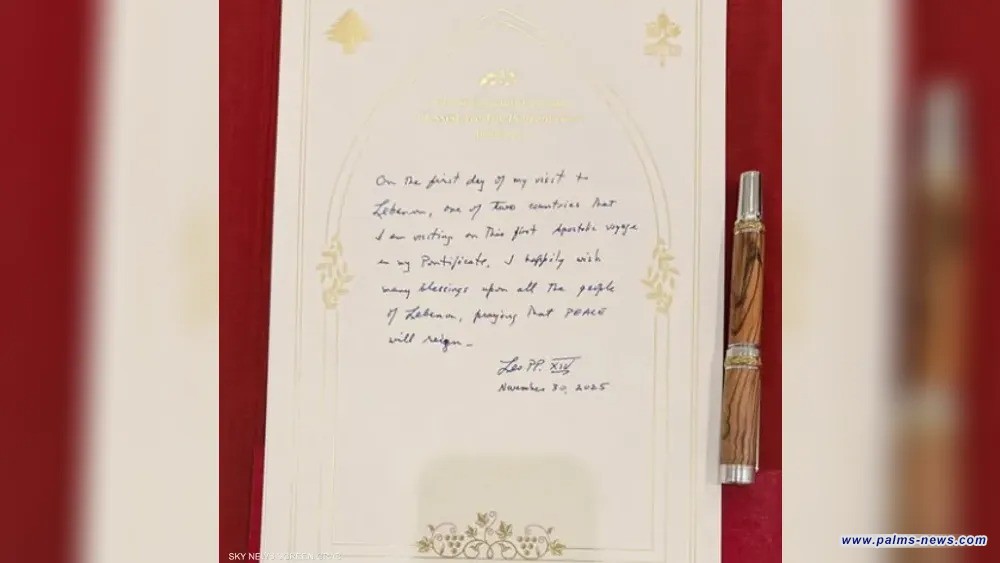 On the first day of my visit to
Lebanon, one of two countries that
I am visiting on this first Apostolic voyage
in my Pontificate, I happily wish
many blessings upon all the people
of Lebanon, praying that PEACE
will reign.
Leo PP. XIV
November 30, 2025
SKY NEWS
www.palms-news.com